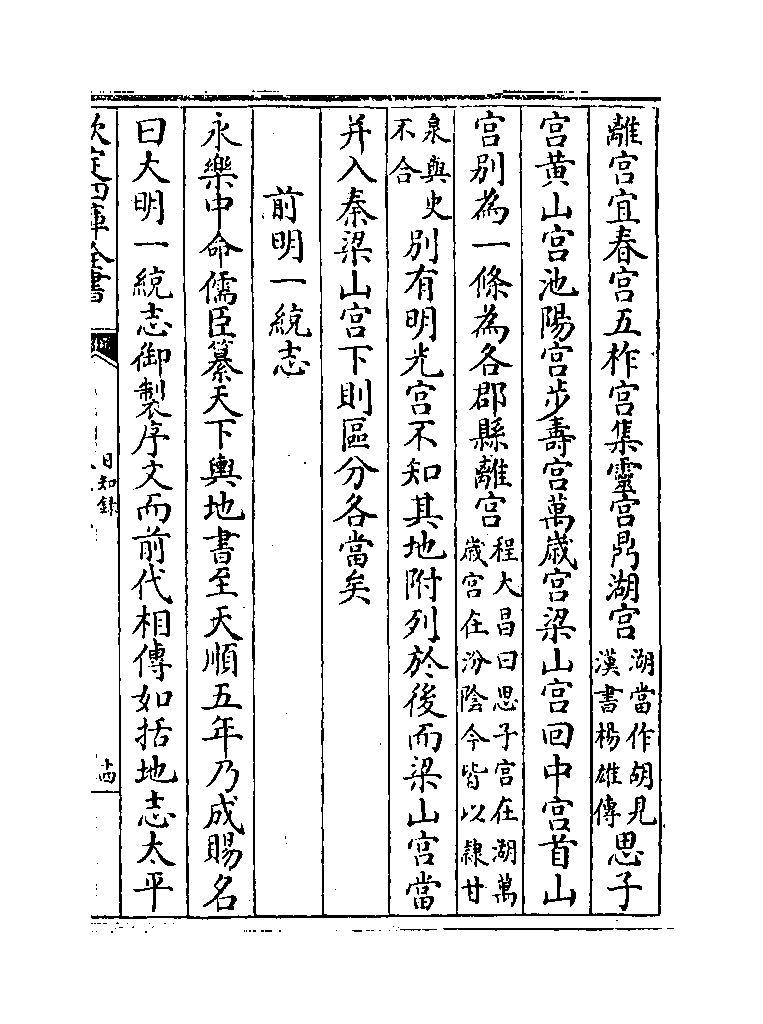 離宫宜春宫五柞宫集靈宫鼎湖宫湖當作胡見漢書楊雄傳思子
宫黄山宫池陽宫步壽宫萬歳宫梁山宫回中宫首山
宫别為一條為各郡縣離宫程大昌曰思子宫在湖萬歳宫在汾陰今皆以隷甘
泉與史不合别有明光宫不知其地附列於後而梁山宫當
并入秦梁山宫下則區分各當矣
前明一統志
永樂中命儒臣纂天下輿地書至天順五年乃成賜名
曰大明一統志御製序文而前代相傳如括地志太平
欽定四庫全書
日知録